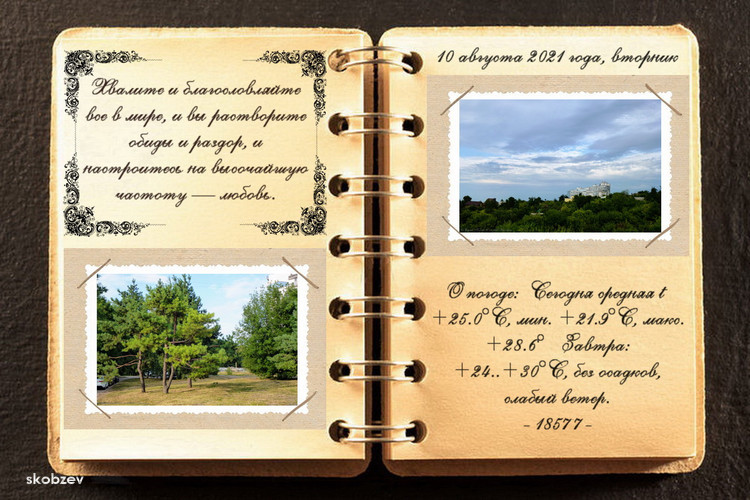 Хвалите и благословляйте
все в мире, и вы растворите
обиды и раздор, и
настроитесь на высочайшую
частоту — любовь.
10 августа 2021 года, вторник
О погоде: Сегодня средняя t
+25.0°C, мин. +21.9°C, макс.
+28.6° Завтра:
+24..+30°C, без осадков,
слабый ветер.
- 18577 -
skobzev